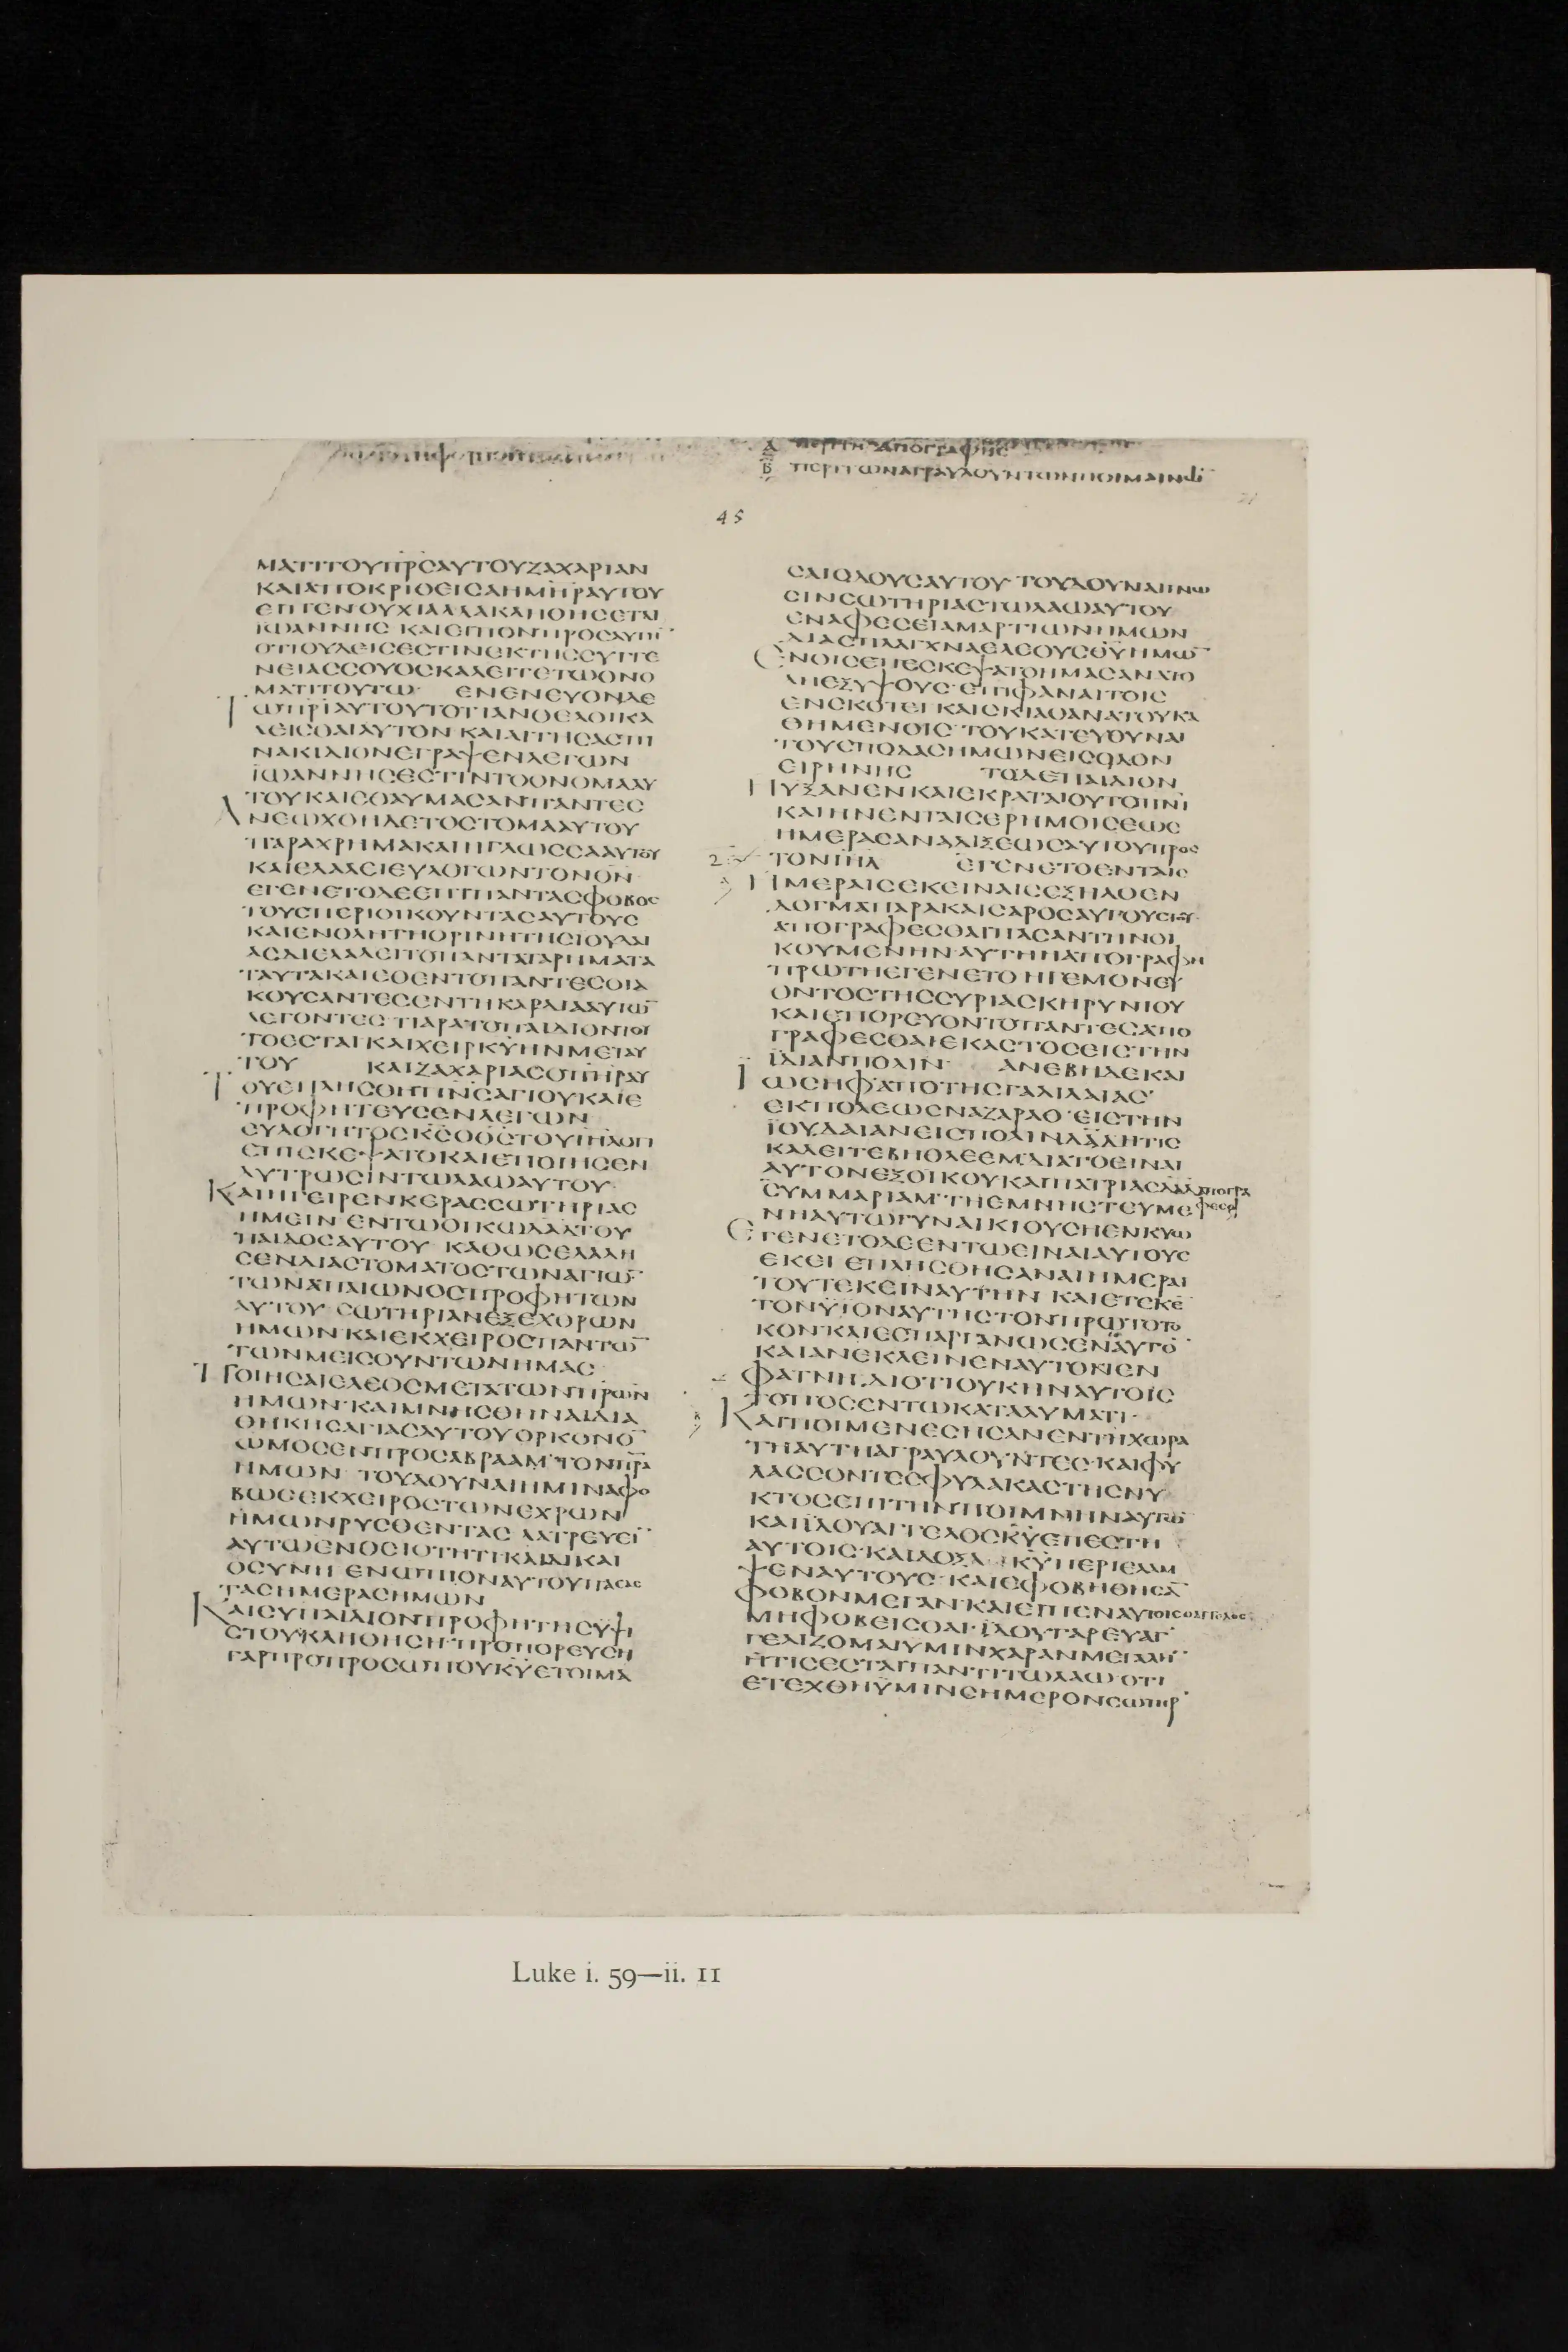 Α περιτηϲ απογραφηϲ
Β περιτωναγραυλουντωνποιμενῶ
45
ΜΑΤΙΤΟΥΠΡϹΑΥΤΟΥΖΑΧΑΡΙΑΝ
ΚΑΙΑΠΟΚΡΙΘΕΙϹΑΗΜΗΡΑΥΤΟΥ
ΕΠΙΕΝΟΥΧΙΑΛΛΑΚΛΗΘΗϹΕΤΑΙ
ΪΩΑΝΝΗϹ ΚΑΙΕΙΠΟΝΠΡΟϹΑΥΤΗ̅
ΟΤΙΟΥΔΕΙϹΕϹΤΙΝΕΚΤΗϹϹΥΓΓΕ
ΝΕΙΑϹϹΟΥΟϹΚΑΛΕΙΤΕΤΩΟΝΟ
ΜΑΤΙΤΟΥΤΩ ΕΝΕΝΕΥΟΝΔΕ
ΤΩΠΡΙΑΥΤΟΥΤΟΤΙΑΝΘΕΛΟΙΚΑ
ΛΕΙϹΘΑΙΑΥΤΟΝ ΚΑΙΑΙΤΗϹΑϹΠΙ
ΝΑΚΙΔΙΟΝΕΓΡΑΨΕΝΛΕΓΩΝ
ΪΩΑΝΝΗϹΕϹΤΙΝΤΟΟΝΟΜΑΑΥ
ΤΟΥΚΑΙΕΘΑΥΜΑϹΑΝΠΑΝΤΕϹ
ΑΝΕΩΧΘΗΔΕΤΟϹΤΟΜΑΑΥΤΟΥ
ΠΑΡΑΧΡΗΜΑΚΑΙΗΓΛΩϹϹΑΑΥΤΟΥ
ΚΑΙΕΛΑΛΕΙΕΥΛΟΓΩΝΤΟΝΘΝ
ΕΓΕΝΕΤΟΔΕΕΠΙΠΑΝΤΑϹΦΟΒΟϹ
ΤΟΥϹΠΕΡΙΟΙΚΟΥΝΤΑϹΑΥΤΟΥϹ
ΚΑΙΕΝΟΛΗΤΗΟΡΙΝΗΤΗϹΙΟΥΔΑΙ
ΑϹΔΙΕΛΑΛΕΙΤΟΠΑΝΤΑΤΑΡΗΜΑΤΑ
ΤΑΥΤΑΚΑΙΕΘΕΝΤΟΠΑΝΤΕϹΟΙΑ
ΚΟΥϹΑΝΤΕϹΕΝΤΗΚΑΡΔΙΑΑΥΤΩ̅
ΛΕΓΟΝΤΕϹ ΤΙΑΡΑΤΟΠΑΙΔΙΟΝΤΟΥ
ΤΟΕϹΤΑΙ ΚΑΙΧΕΙΡΚΥΗΝΜΕΤΑΥ
ΤΟΥ ΚΑΙΖΑΧΑΡΙΑϹΟΠΗΡΑΥ
ΤΟΥΕΠΛΗϹΘΗΠΝϹΑΓΙΟΥΚΑΙΕ
ΠΡΟΦΗΤΕΥϹΕΝΛΕΓΩΝ
ΕΥΛΟΓΗΤΟϹΚϹΟΘϹΤΟΥΙΗΛΟΤΙ
ΕΠΕϹΚΕΨΑΤΟΚΑΙΕΠΟΙΗϹΕΝ
ΛΥΤΡΩϹΙΝΤΩΛΑΩΑΥΤΟΥ
ΚΑΙΗΓΕΙΡΕΝΚΕΡΑϹϹΩΤΗΡΙΑϹ
ΗΜΕΙΝ ΕΝΤΩΟΙΚΩΔΑΔΤΟΥ
ΠΑΙΔΟϹΑΥΤΟΥ ΚΑΘΩϹΕΛΑΛΗ
ϹΕΝΔΙΑϹΤΟΜΑΤΟϹΤΩΝΑΓΙΩ̅
ΤΩΝΑΠΑΙΩΝΟϹΠΡΟΦΗΤΩΝ
ΑΥΤΟΥ ϹΩΤΗΡΙΑΝΕΞΕΧΘΡΩΝ
ΗΜΩΝ ΚΑΙΕΚΧΕΙΡΟϹΠΑΝΤΩ̅
ΤΩΝΜΕΙϹΟΥΝΤΩΝΗΜΑϹ
ΠΟΙΗϹΑΙΕΛΕΟϹΜΕΤΑΤΩΝΠΡΩΝ
ΗΜΩΝ ΚΑΙΜΝΗϹΘΗΝΑΙΔΙΑ
ΘΗΚΗϹΑΓΙΑϹΑΥΤΟΥΟΡΚΟΝΟ̅
ΩΜΟϹΕΝΠΡΟϹΑΒΡΑΑΜ ΤΟΝΠΡΑ
ΗΜΩΝ ΤΟΥΔΟΥΝΑΙΗΜΙΝΑΦΟ
ΒΩϹΕΚΧΕΙΡΟϹΤΩΝΕΧΡΩΝ
ΗΜΩΝΡΥϹΘΕΝΤΑϹ ΛΑΤΡΕΥΕΙ̅
ΑΥΤΩΕΝΟϹΙΟΤΗΤΙΚΑΙΔΙΚΑΙ
ΟϹΥΝΗ ΕΝΩΠΙΟΝΑΥΤΟΥΠΑϹΑϹ
ΤΑϹΗΜΕΡΑϹΗΜΩΝ
ΚΑΙϹΥΠΑΙΔΙΟΝΠΡΟΦΗΤΗϹΥΨΙ
ϹΤΟΥΚΛΗΘΗϹΗ ΠΡΟΠΟΡΕΥϹΗ
ΓΑΡΠΡΟΠΡΟϹΩΠΟΥΚΥΕΤΟΙΜΑ
ϹΑΙΟΔΟΥϹΑΥΤΟΥ ΤΟΥΔΟΥΝΑΙΓΝΩ
ϹΙΝϹΩΤΗΡΙΑϹΤΩΛΑΩΑΥΤΟΥ
ΕΝΑΦΕϹΕΙΑΜΑΡΤΙΩΝΗΜΩΝ
ΔΙΑϹΠΛΑΓΧΝΑΕΛΕΟΥϹΘΥΗΜΩ̅
ΕΝΟΙϹΕΠΕϹΚΕΨΑΤΟΗΜΑϹΑΝΑΤΟ
ΛΗΕΞΥΨΟΥϹ ΕΠΙΦΑΝΑΙΤΟΙϹ
ΕΝϹΚΟΤΕΙ ΚΑΙϹΚΙΑΘΑΝΑΤΟΥΚΑ
ΘΗΜΕΝΟΙϹ ΤΟΥΚΑΤΕΥΘΥΝΑΙ
ΤΟΥϹΠΟΔΑϹΗΜΩΝΕΙϹΟΔΟΝ
ΕΙΡΗΝΗϹ ΤΟΔΕΠΑΙΔΙΟΝ
ΗΥΞΑΝΕΝΚΑΙΕΚΡΑΤΑΙΟΥΤΟΠΝΙ
ΚΑΙΗΝΕΝΤΑΙϹΕΡΗΜΟΙϹΕΩϹ
ΗΜΕΡΑϹΑΝΑΔΙΞΕΩϹΑΥΤΟΥΠΡΟϹ
2 ΤΟΝΙΗΛ ΕΓΕΝΕΤΟΕΝΤΑΙϹ
ΗΜΕΡΑΙϹΕΚΕΙΝΑΙϹΕΞΗΛΘΕΝ
ΔΟΓΜΑΠΑΡΑΚΑΙϹΑΡΟϹΑΥΓΟΥϹΤΟΥ
ΑΠΟΓΡΑΦΕϹΘΑΙΠΑϹΑΝΤΗΝΟΙ
ΚΟΥΜΕΝΗΝ ΑΥΤΗΗΑΠΟΓΡΑΦΗ
ΠΡΩΤΗΕΓΕΝΕΤΟ ΗΓΕΜΟΝΕΥ
ΟΝΤΟϹΤΗϹϹΥΡΙΑϹΚΗΡΥΝΙΟΥ
ΚΑΙΕΠΟΡΕΥΟΝΤΟΠΑΝΤΕϹΑΠΟ
ΓΡΑΦΕϹΘΑΙΕΚΑϹΤΟϹΕΙϹΤΗΝ
ΪΔΙΑΝΠΟΛΙΝ ΑΝΕΒΗΔΕΚΑΙ
ΪΩϹΗΦΑΠΟΤΗϹΓΑΛΙΛΑΙΑϹ
ΕΚΠΟΛΕΩϹΝΑΖΑΡΑΘ ΕΙϹΤΗΝ
ΪΟΥΔΑΙΑΝΕΙϹΠΟΛΙΝΔΑΔΗΤΙϹ
ΚΑΛΕΙΤΕΒΗΘΛΕΕΜΔΙΑΤΟΕΙΝΑΙ
ΑΥΤΟΝΕΞΟΙΚΟΥΚΑΙΠΑΤΡΙΑϹΔΑΔΑΠΟΓΡΑ
ϹΥΜΜΑΡΙΑΜ ΤΗΕΜΝΗϹΤΕΥΜΕ
ΝΗΑΥΤΩΓΥΝΑΙΚΙΟΥϹΗΕΝΚΥΩ
ΕΓΕΝΕΤΟΔΕΕΝΤΩΕΙΝΑΙΑΥΤΟΥϹ
ΕΚΕΙ ΕΠΛΗϹΘΗϹΑΝΑΙΗΜΕΡΑΙ
ΤΟΥΤΕΚΕΙΝΑΥΤΗΝ ΚΑΙΕΤΕΚΕ̅
ΤΟΝΫΙΟΝΑΥΤΗϹΤΟΝΠΡΩΤΟΤΟ
ΚΟΝ ΚΑΙΕϹΠΑΡΓΑΝΩϹΕΝΑΥΤΟ̅
ΚΑΙΑΝΕΚΛΕΙΝΕΝΑΥΤΟΝΕΝ
ΦΑΤΝΗ ΔΙΟΤΙΟΥΚΗΝΑΥΤΟΙϹ
ΤΟΠΟϹΕΝΤΩΚΑΤΑΛΥΜΑΤΙ
ΚΑΙΠΟΙΜΕΝΕϹΗϹΑΝΕΝΤΗΧΩΡΑ
ΤΗΑΥΤΗΑΓΡΑΥΛΟΥΝΤΕϹ ΚΑΙΦΥ
ΛΑϹϹΟΝΤΕϹΦΥΛΑΚΑϹΤΗϹΝΥ
ΚΤΟϹΕΠΙΤΗΝΠΟΙΜΝΗΝΑΥΤΩ̅
ΚΑΙΪΔΟΥΑΓΓΕΛΟϹΚΥΕΠΕϹΤΗ
ΑΥΤΟΙϹ ΚΑΙΔΟΞΑ ΚΥΠΕΡΙΕΛΑΜ
ΨΕΝΑΥΤΟΥϹ ΚΑΙΕΦΟΒΗΘΗϹΑ̅
ΦΟΒΟΝΜΕΓΑΝ ΚΑΙΕΙΠΕΝΑΥΤΟΙϹΟΑΓΓΕΛΟϹ
ΜΗΦΟΒΕΙϹΘΑΙ ΪΔΟΥΓΑΡΕΥΑΓ
ΓΕΛΙΖΟΜΑΙΥΜΙΝΧΑΡΑΝΜΕΓΑΛΗ̅
ΗΤΙϹΕϹΤΑΙΠΑΝΤΙΤΩΛΑΩ ΟΤΙ
ΕΤΕΧΘΗΫΜΙΝϹΗΜΕΡΟΝϹΩΤΗΡ
Luke i. 59—ii. 11